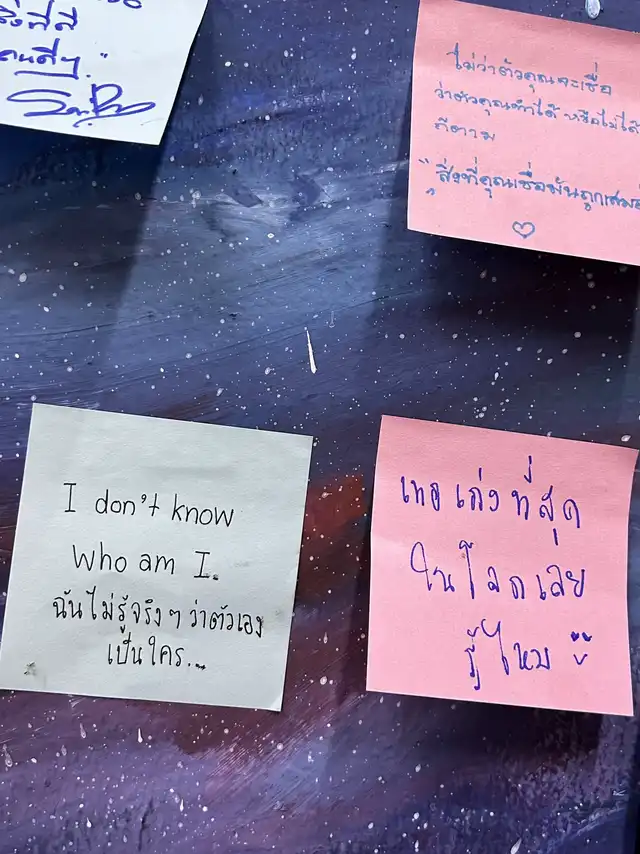 สิ่งที่ดี
คนดีๆ."
ไม่ว่าตัวคุณจะเชื่อ
ว่าตัวคุณทำได้ หรือไม่ได้
ก็ตาม
"สิ่งที่คุณเชื่อมันถูกเสมอ
I don't know
who am I.
ฉันไม่รู้จริงๆ ว่าตัวเอง
เป็นใคร...
เธอเก่งที่สุด
ในโลกเลย
รู้ไหม